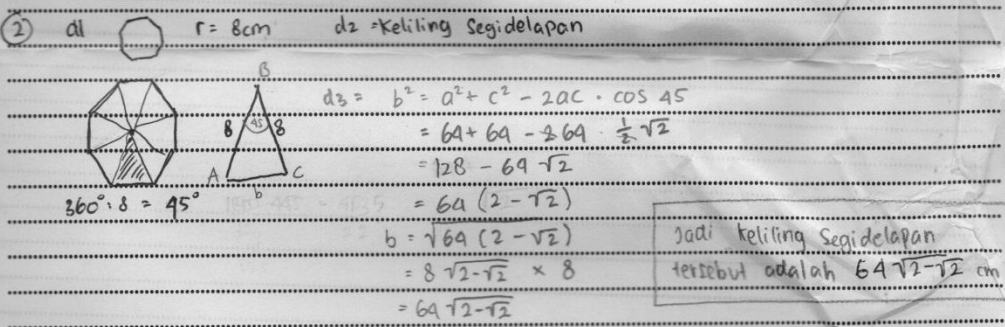 2 d1 r = 8cm d2 = Keliling Segidelapan
B
8 45 8
A C
b
360° : 8 = 45°
d3 = b² = a² + c² - 2ac . cos 45
= 64 + 64 - 2 64 . 1/2 √2
= 128 - 64 √2
= 64 (2 - √2)
b = √64 (2 - √2)
= 8 √2-√2 × 8
= 64 √2-√2
Jadi keliling Segidelapan
tersebut adalah 64 √2-√2 cm